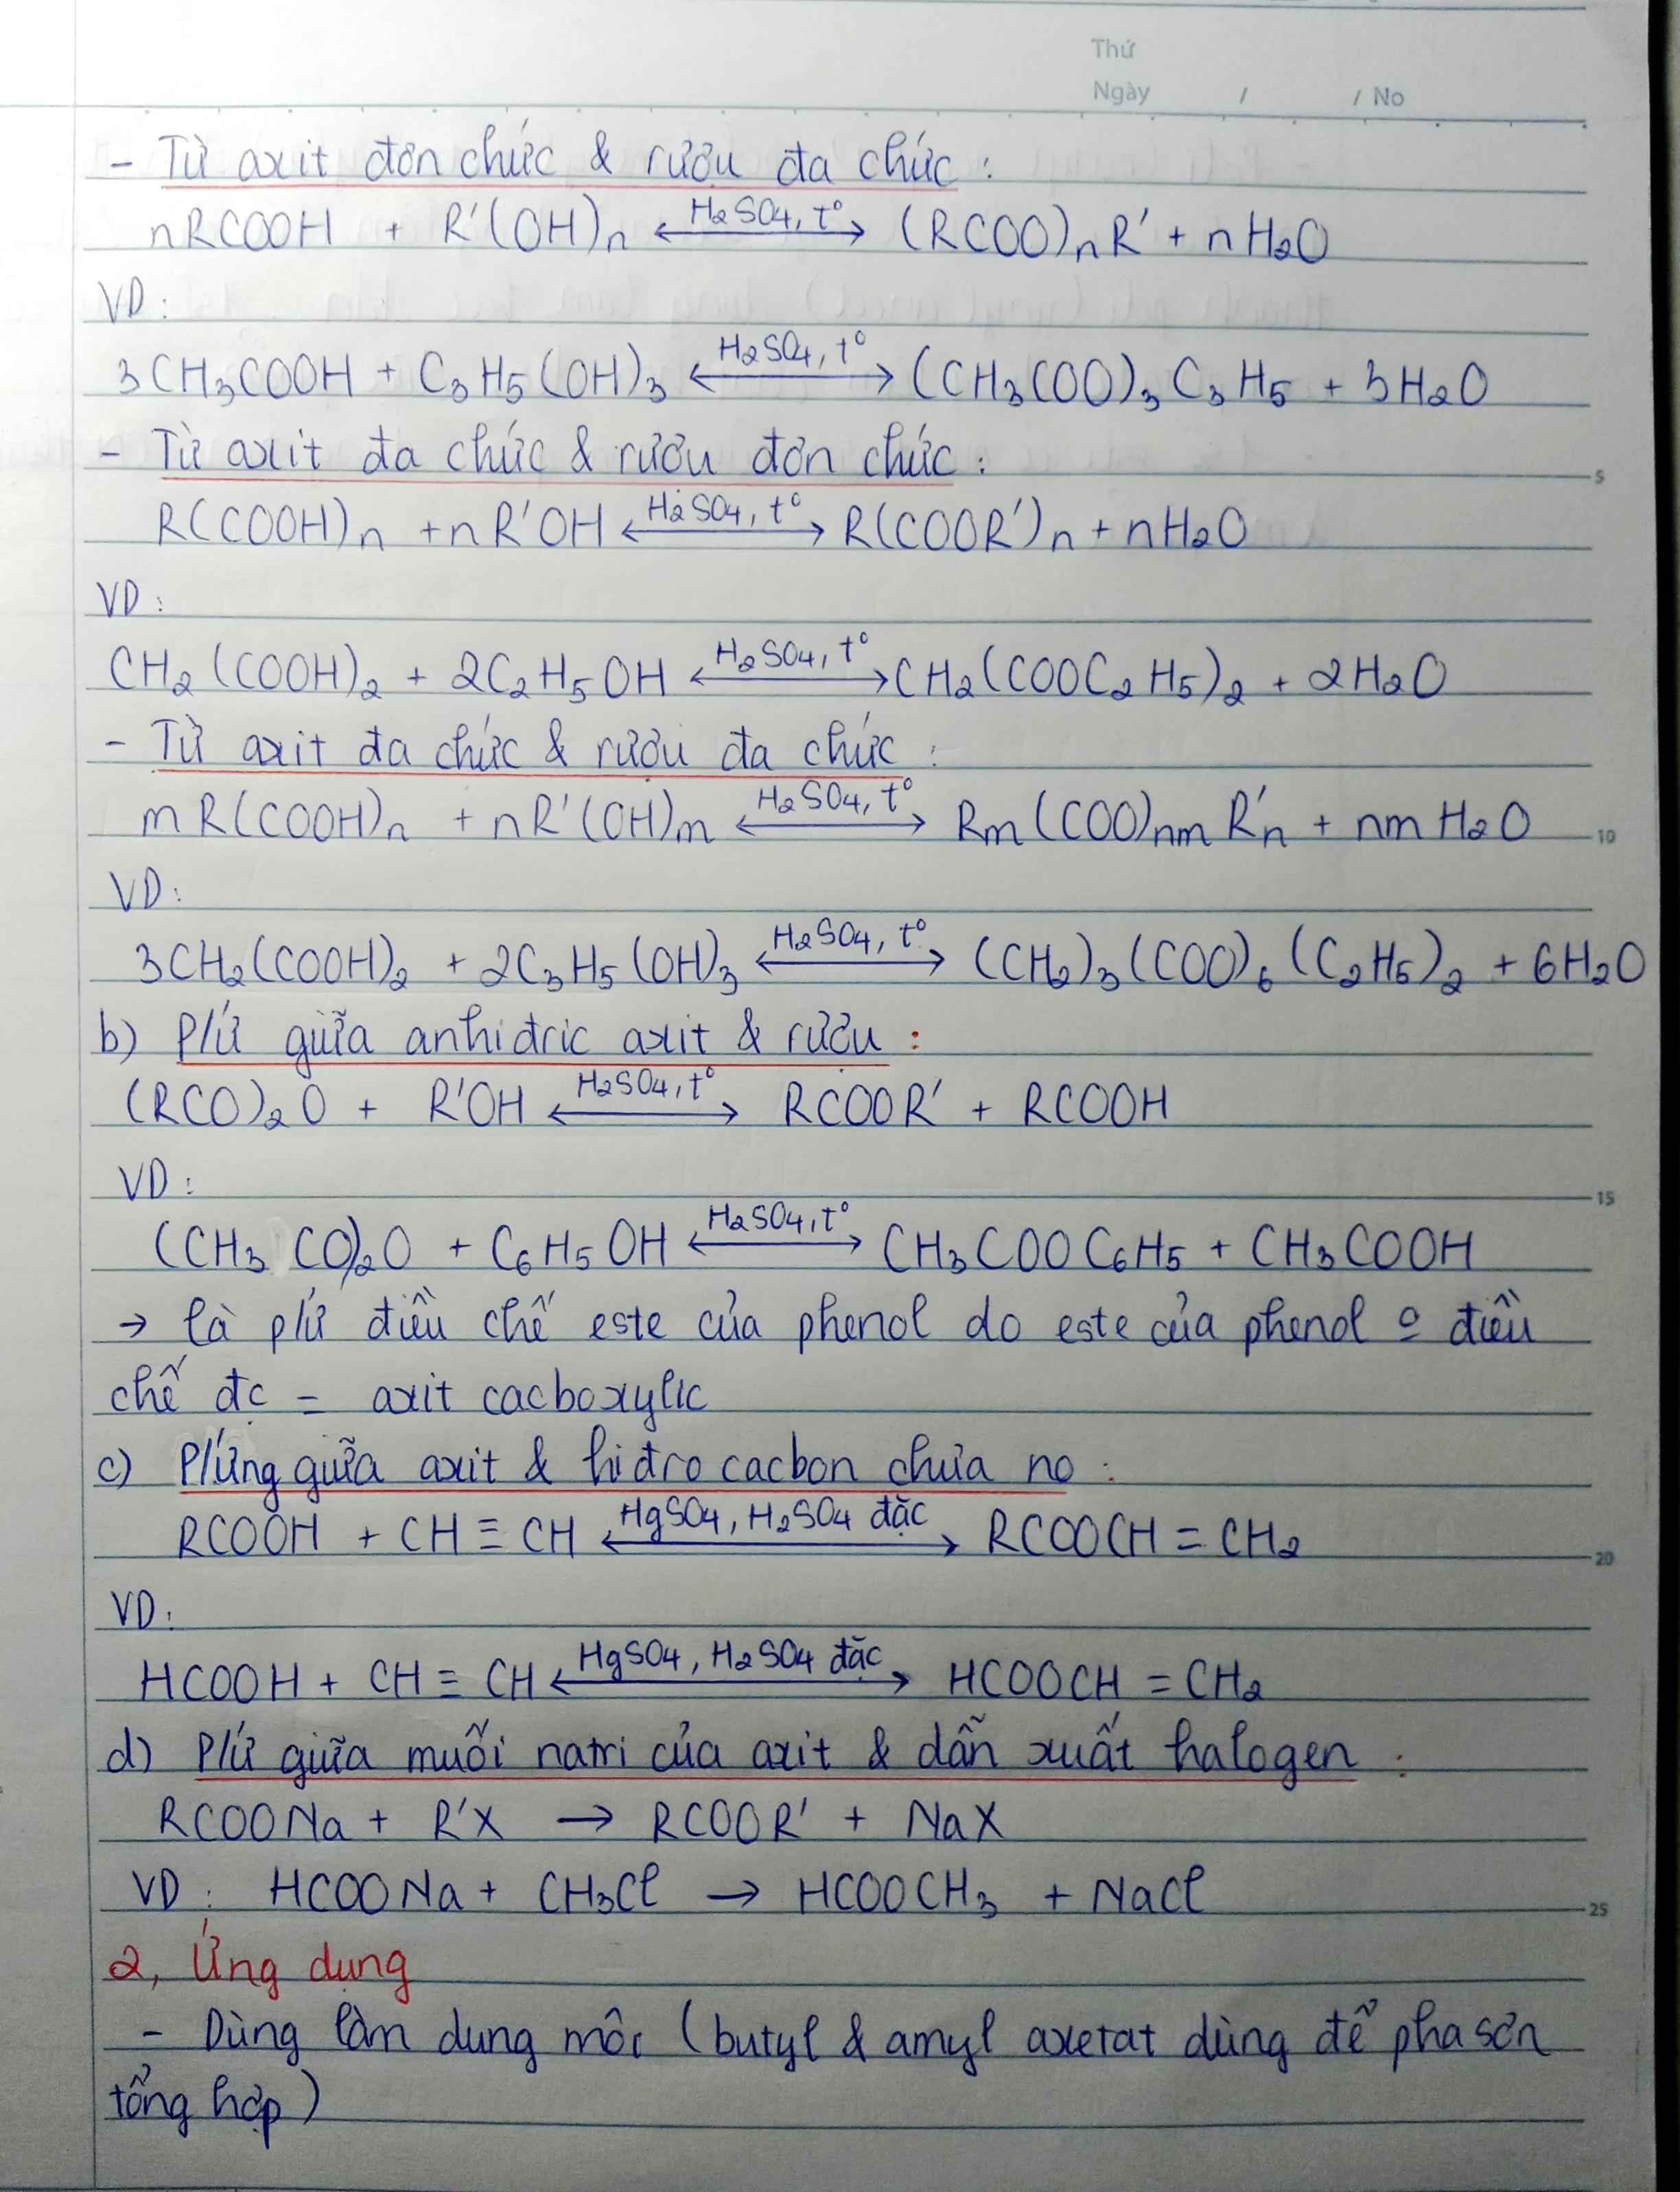 Thứ
Ngày / / No
- Từ axit đơn chức & rượu đa chức :
nRCOOH + R'(OH)n ⟷ (H₂SO₄, t°) (RCOO)nR' + nH₂O
VD :
3CH₃COOH + C₃H₅(OH)₃ ⟷ (H₂SO₄, t°) (CH₃COO)₃C₃H₅ + 3H₂O
- Từ axit đa chức & rượu đơn chức :
5
R(COOH)n + nR'OH ⟷ (H₂SO₄, t°) R(COOR')n + nH₂O
VD :
CH₂(COOH)₂ + 2C₂H₅OH ⟷ (H₂SO₄, t°) CH₂(COOC₂H₅)₂ + 2H₂O
- Từ axit đa chức & rượu đa chức :
mR(COOH)n + nR'(OH)m ⟷ (H₂SO₄, t°) Rm(COO)nmR'n + nmH₂O
10
VD :
3CH₂(COOH)₂ + 2C₃H₅(OH)₃ ⟷ (H₂SO₄, t°) (CH₂)₃(COO)₆(C₂H₅)₂ + 6H₂O
b) P/ứ giữa anhiđric axit & rượu :
(RCO)₂O + R'OH ⟷ (H₂SO₄, t°) RCOOR' + RCOOH
VD :
15
(CH₃CO)₂O + C₆H₅OH ⟷ (H₂SO₄, t°) CH₃COOC₆H₅ + CH₃COOH
→ là p/ứ điều chế este của phenol do este của phenol o điều
chế đc = axit cacboxylic
c) P/ứng giữa axit & hiđro cacbon chưa no :
RCOOH + CH ≡ CH ⟷ (HgSO₄, H₂SO₄ đặc) RCOOCH = CH₂
20
VD :
HCOOH + CH ≡ CH ⟷ (HgSO₄, H₂SO₄ đặc) HCOOCH = CH₂
d) P/ứ giữa muối natri của axit & dẫn xuất halogen :
RCOONa + R'X → RCOOR' + NaX
VD : HCOONa + CH₃Cl → HCOOCH₃ + NaCl
25
2, Ứng dụng
- Dùng làm dung môi (butyl & amyl axetat dùng để pha sơn
tổng hợp)